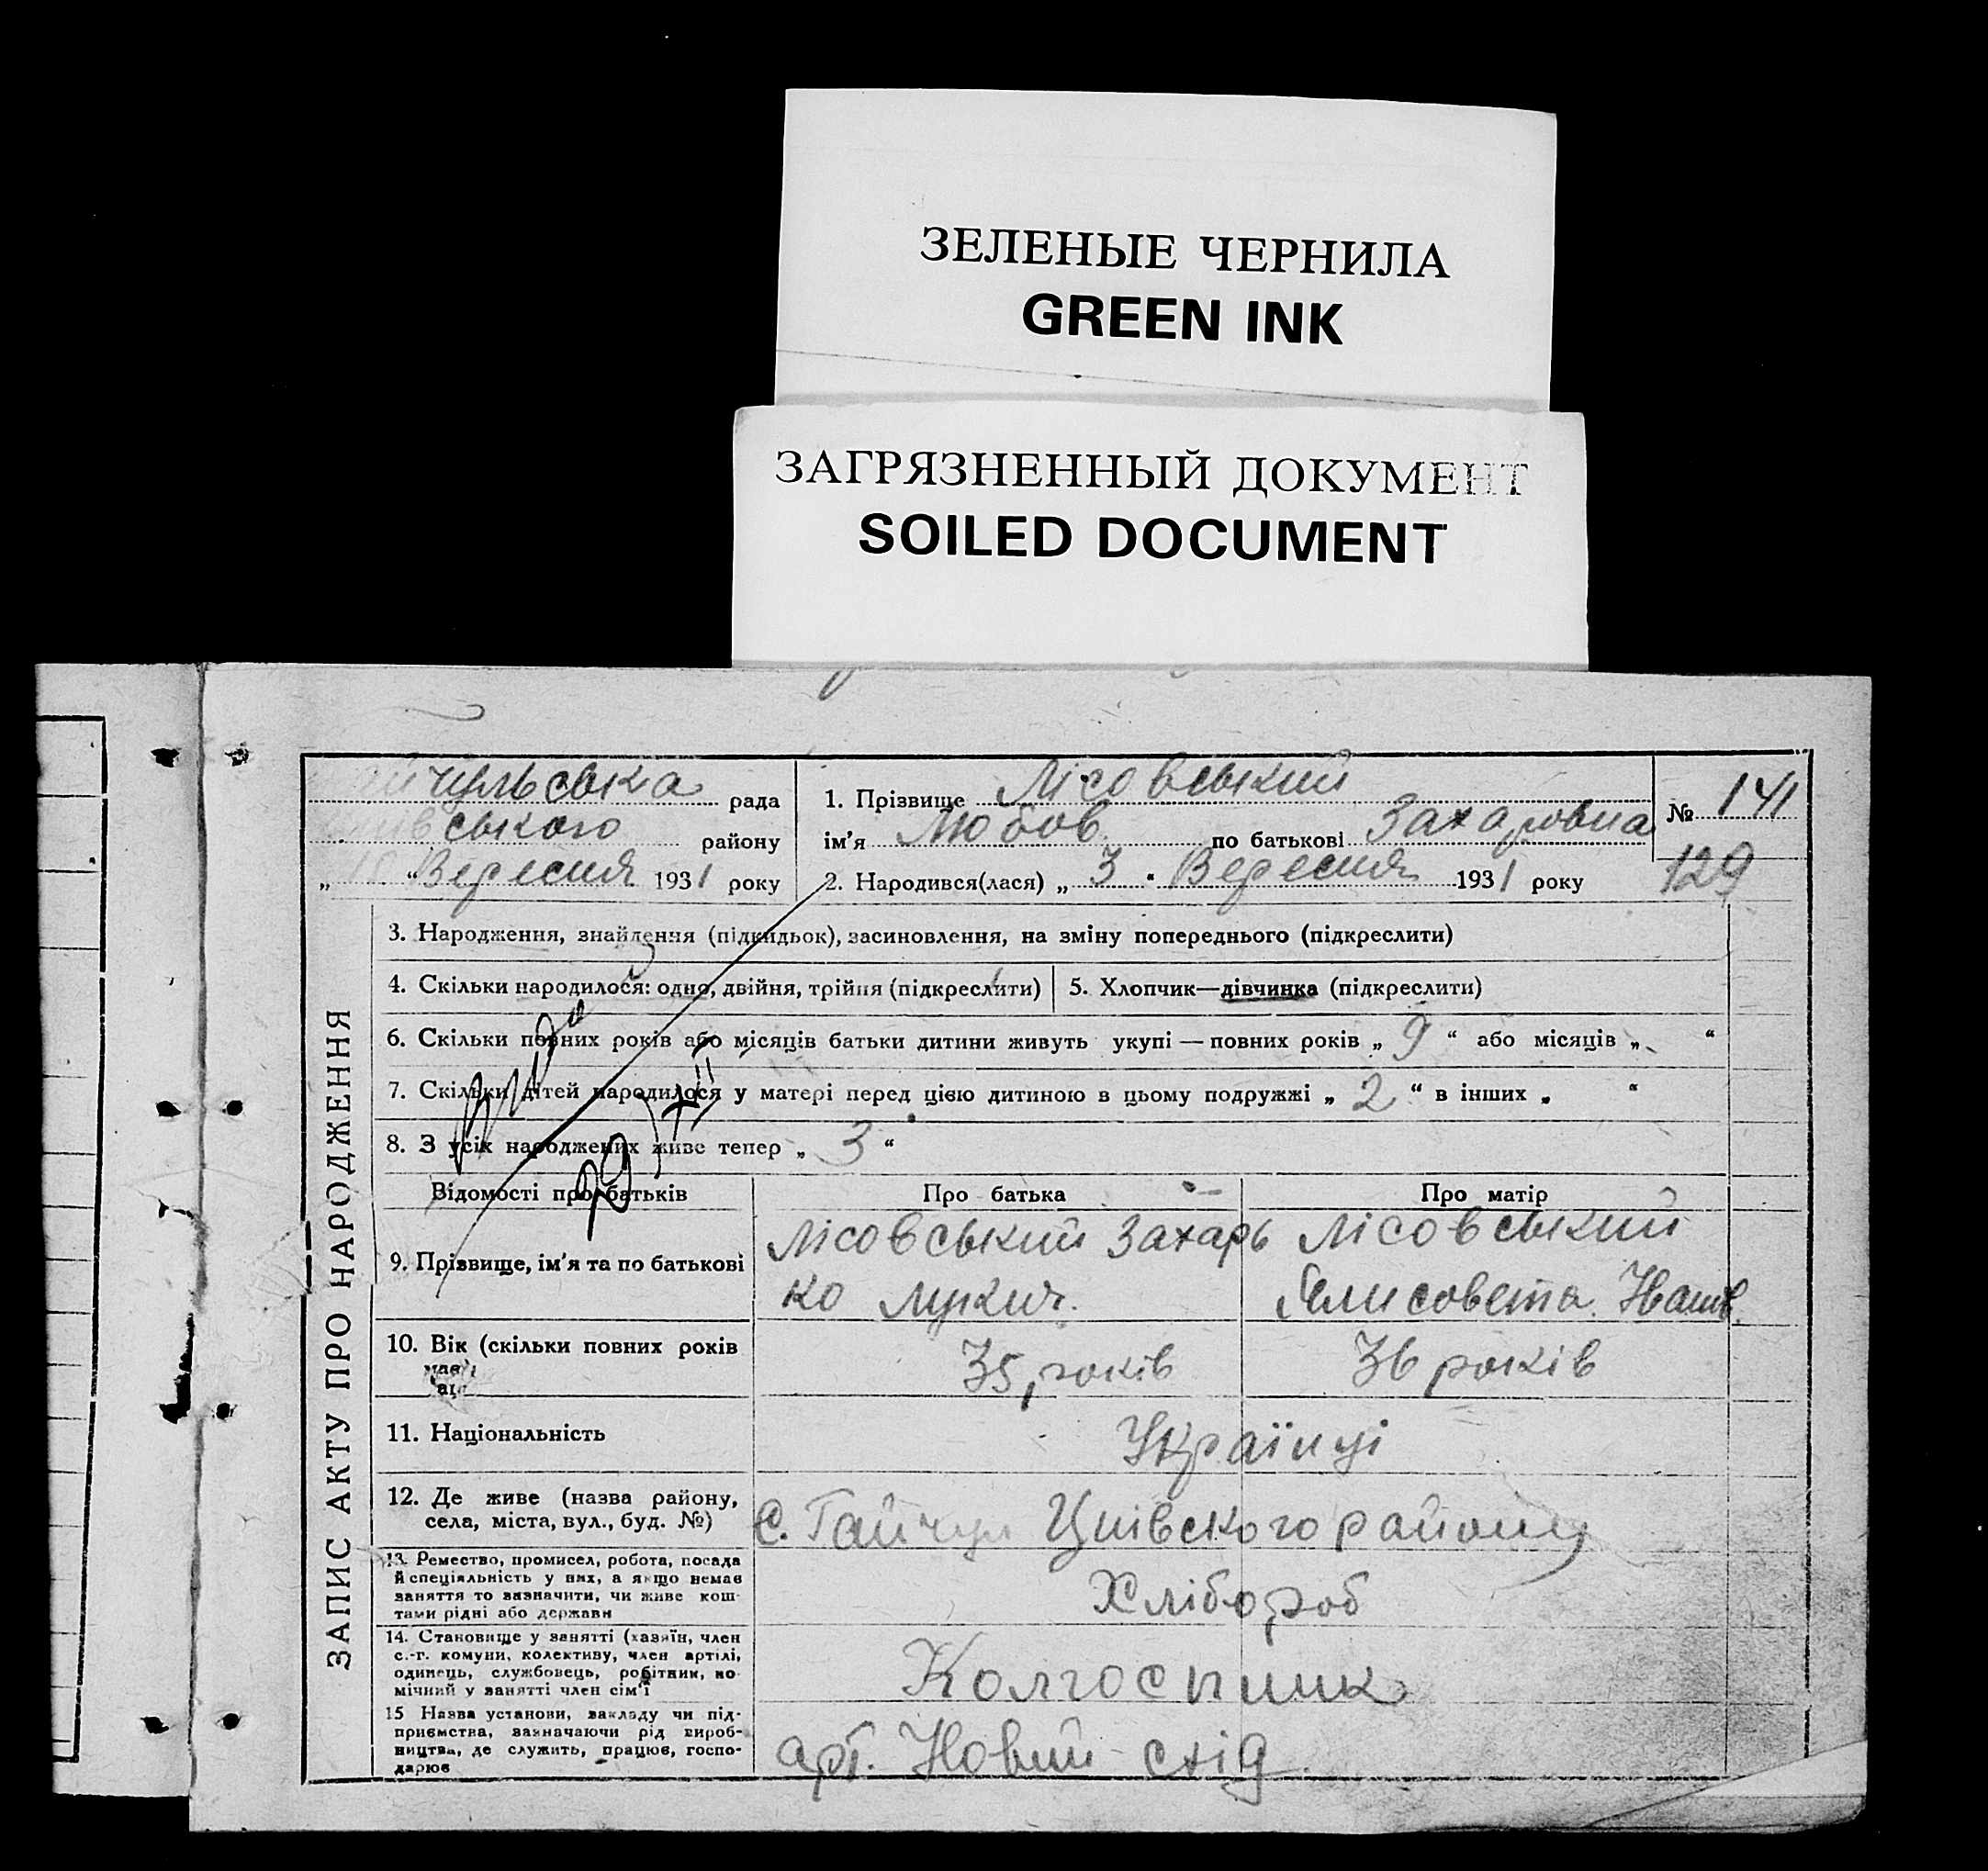 ЗЕЛЕНЫЕ ЧЕРНИЛА
GREEN INK
ЗАГРЯЗНЕННЫЙ ДОКУМЕНТ
SOILED DOCUMENT
ЗАПИС АКТУ ПРО НАРОДЖЕННЯ
айчульська рада
ського району
„ “ Вересня 1931 року
1. Прізвище Лісовський
ім'я Любов по батькові Захаровна
2. Народився(лася) „ 3 “ Вересня 1931 року
№ 141
129
3. Народження, знайдення (підкидьок), засиновлення, на зміну попереднього (підкреслити)
4. Скільки народилося: одно, двійня, трійня (підкреслити)
5. Хлопчик—дівчинка (підкреслити)
6. Скільки повних років або місяців батьки дитини живуть укупі — повних років „ 9 “ або місяців „ “
7. Скільки дітей народилося у матері перед цією дитиною в цьому подружжі „ 2 “ в інших „ “
8. З усіх народжених живе тепер „ 3 “
29 XII
Відомості про батьків Про батька Про матір
9. Прізвище, ім'я та по батькові
Лісовський Захарь
ко Лукич.
Лісовський
Єлисовета
10. Вік (скільки повних років
35 років 36 років
11. Національність Українці
12. Де живе (назва району,
села, міста, вул., буд. №)
с. Гайчул Цпівского району
13. Ремество, промисел, робота, посада
й спеціяльність у них, а якщо немає
заняття то визначити, чи живе кош-
тами рідні або держави
Хлібороб
14. Становище у занятті (хазяїн, член
с.-г. комуни, колективу, член артілі,
одинець, службовець, робітник, по-
мічний у занятті член сім'ї
Колгоспник
15 Назва установи, закладу чи під-
приємства, зазначаючи рід вироб-
ництва, де служить, працює, госпо-
дарює
арт. Новий схід.